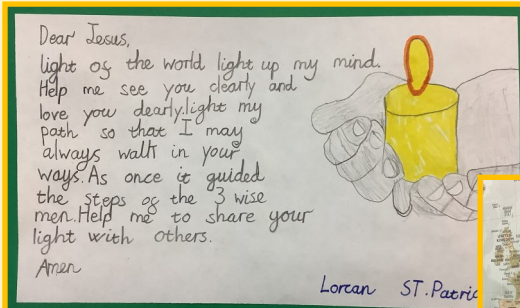 Dear Jesus,
light of the world light up my mind.
Help me see you clearly and
love you dearly.light my
path so that I may
always walk in your
ways.As once it guided
the steps of the 3 wise
men.Help me to share your
light with others.
Amen
Lorcan ST.Patric